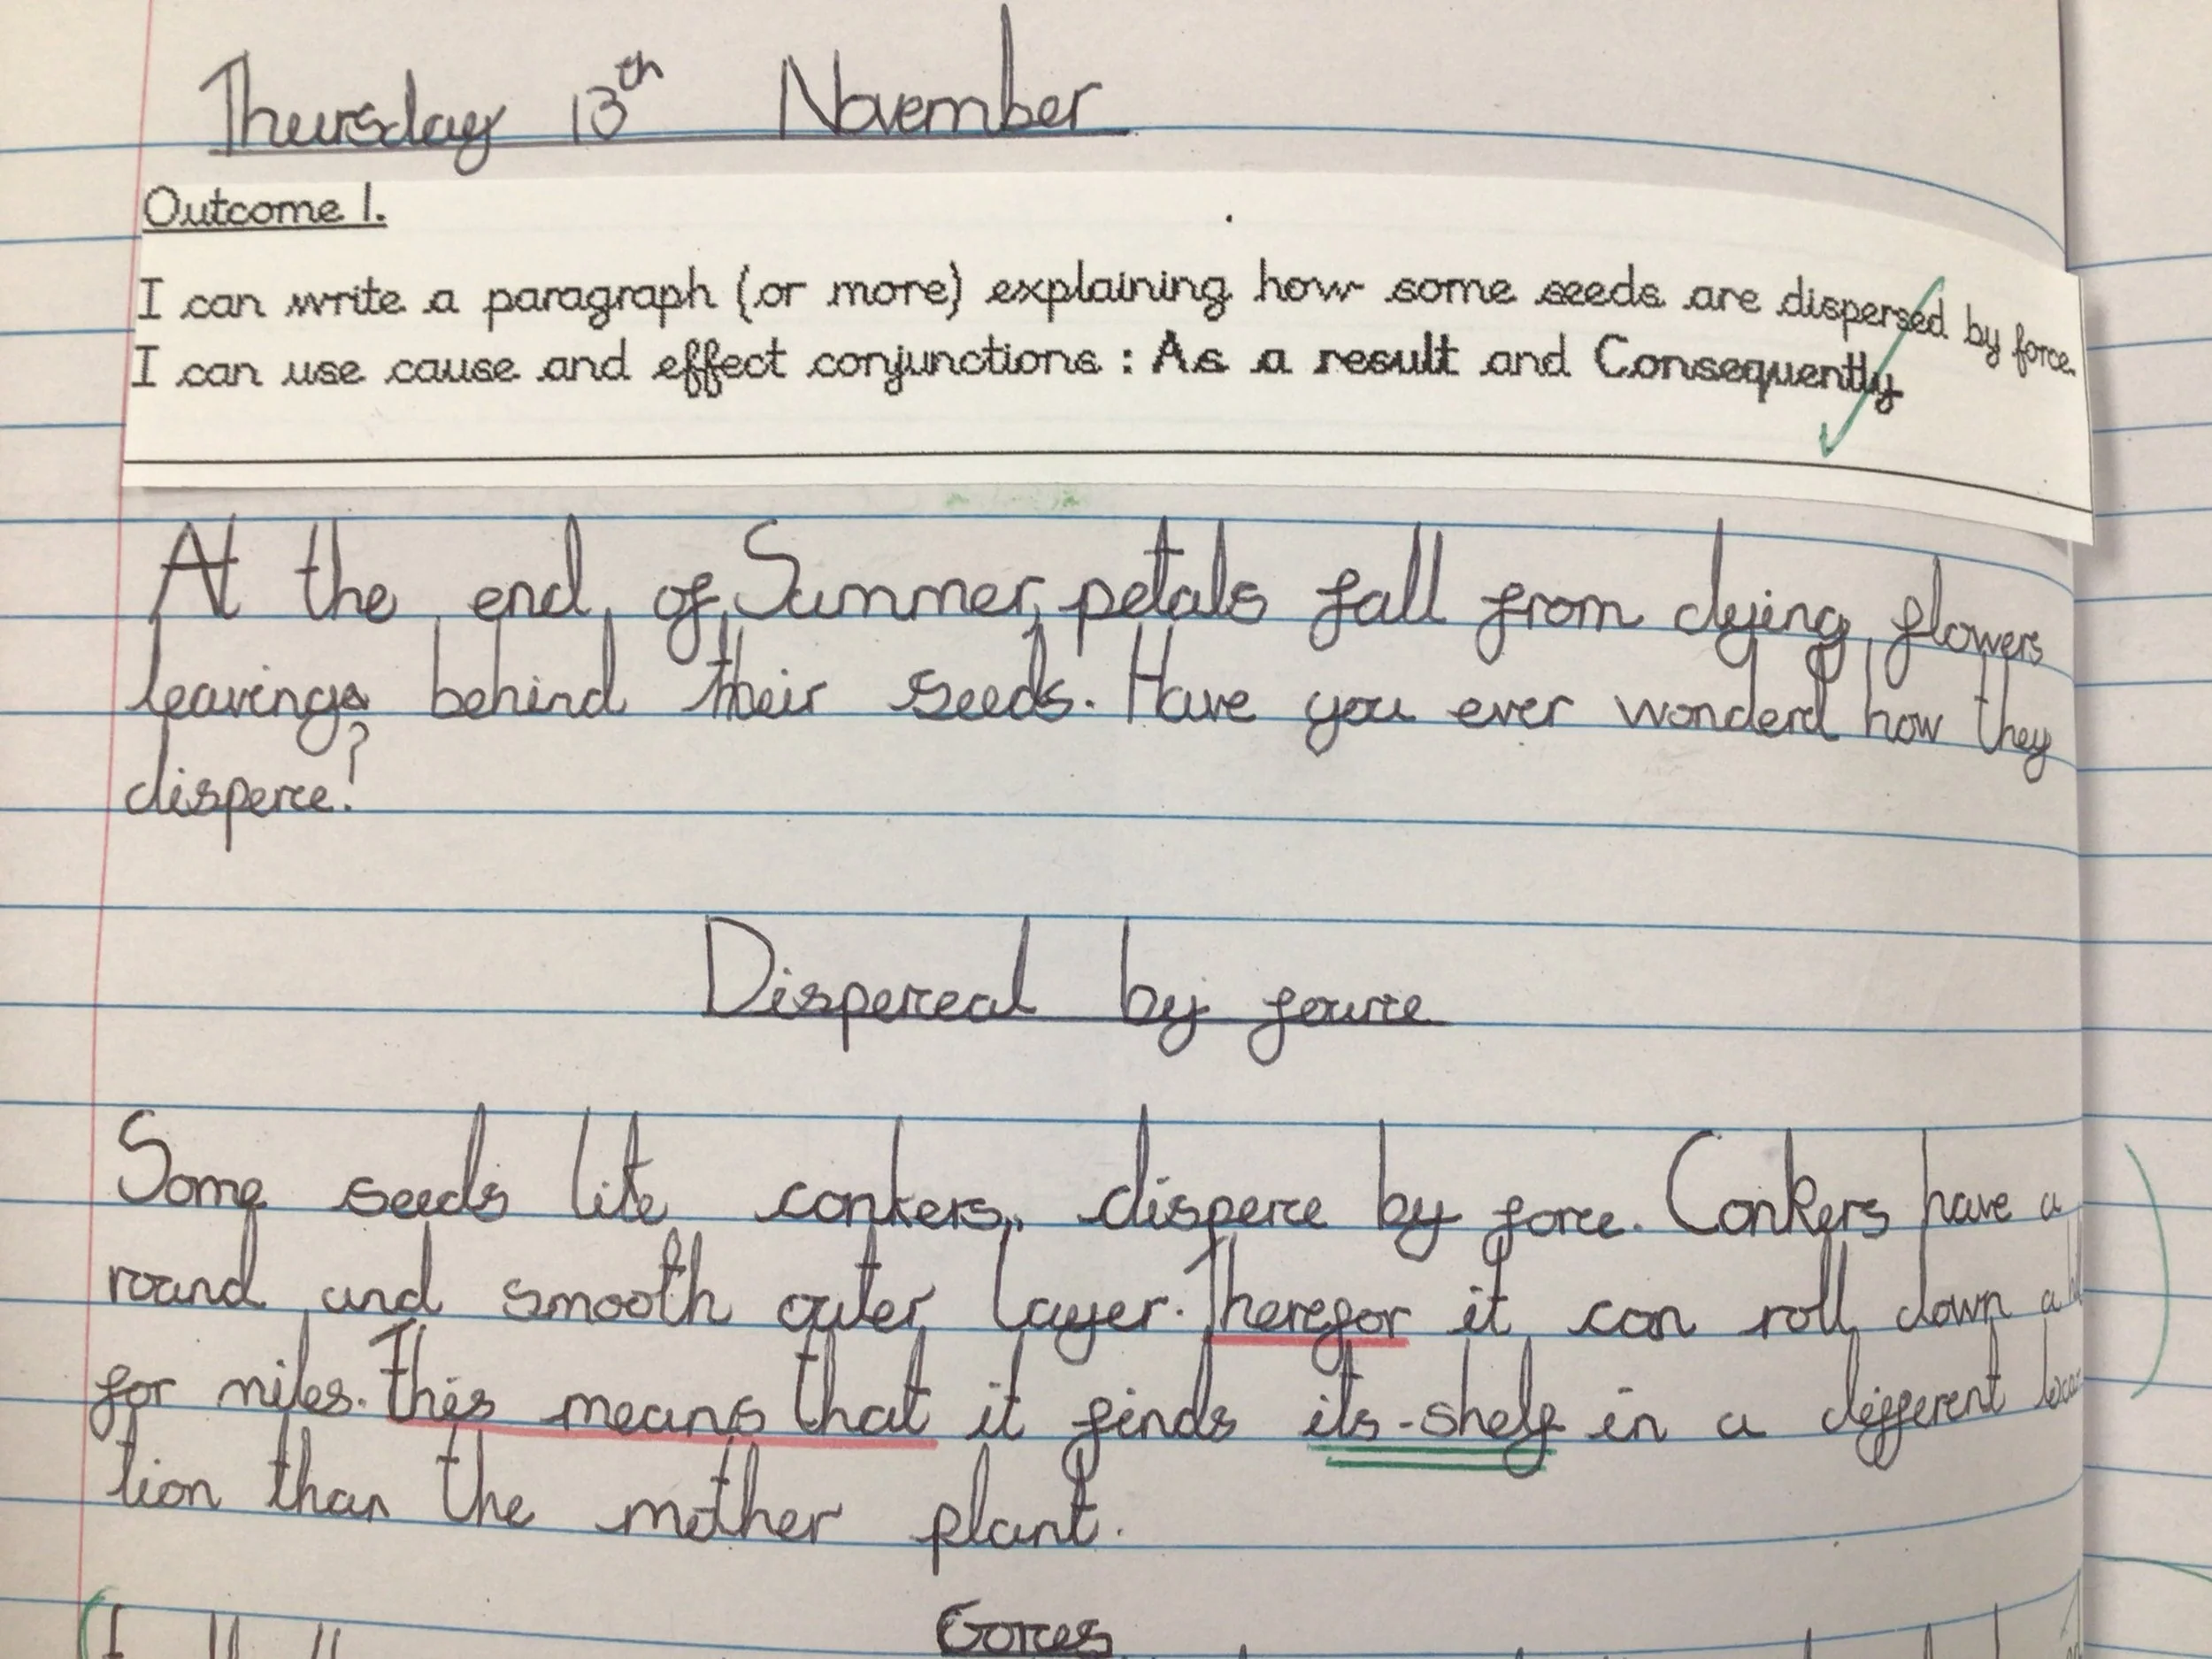 Thursday 13th November
Outcome 1.
I can write a paragraph (or more) explaining how some seeds are dispersed by force.
I can use cause and effect conjunctions : As a result and Consequently
At the end of Summer, petals fall from dying flowers
leavings behind their seeds. Have you ever wonderd how they
disperce?
Dispereal by fource
Some seeds like conkers, disperce by force. Conkers have a
round and smooth outer layer. Therefor it can roll down a
for miles. This means that it finds its-shelf in a different loca
tion than the mother plant.
Forces